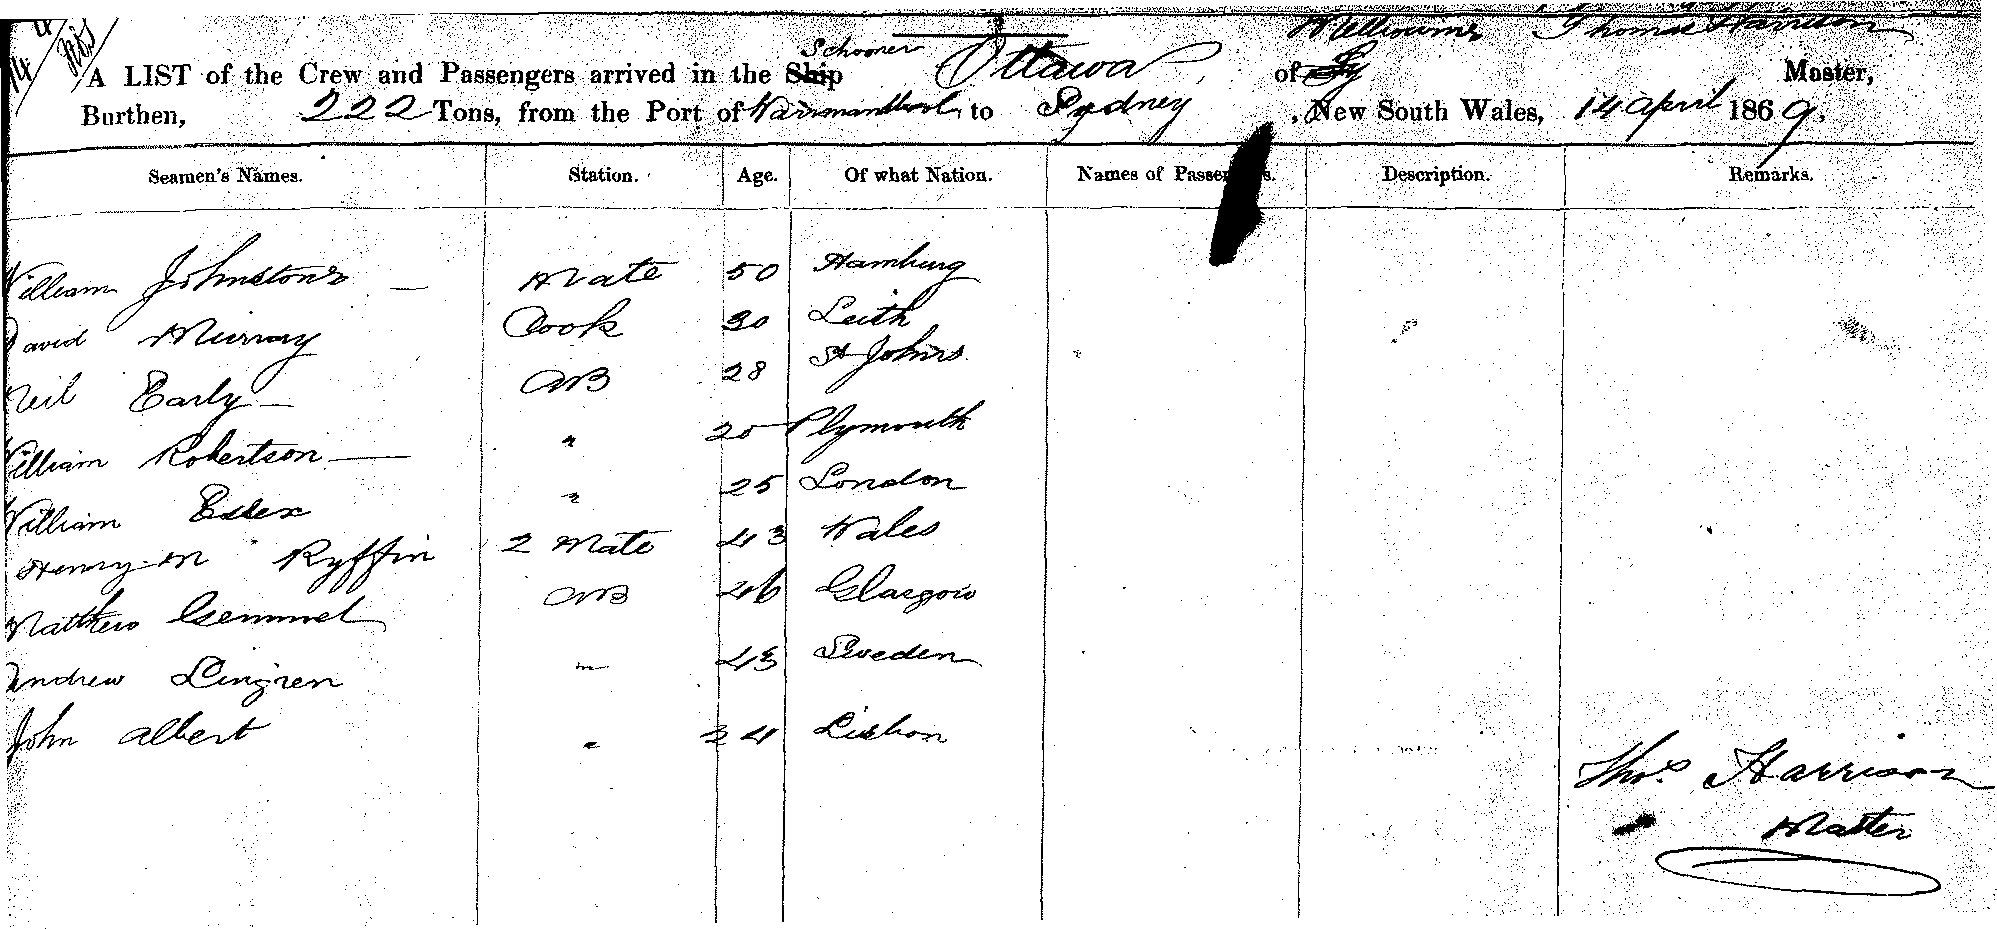 Schooner Melbourne Thomas Harrison
A LIST of the Crew and Passengers arrived in the Ship Ottawa of Sy Master,
Burthen, 222 Tons, from the Port of Warrnambool to Sydney, New South Wales, 14 April 1869.
Seamen's Names. Station. Age. Of what Nation. Names of Passengers. Description. Remarks.
William Johnstone Mate 50 Hamburg
David Murray Cook 30 Leith
Neil Early AB 28 St Johns
William Robertson " 20 Plymouth
William Essex " 25 London
Henry M Ryffin 2 Mate 43 Wales
Matthew Gemmel AB 46 Glasgow
Andrew Lingren " 43 Sweden
John Albert " 24 Lisbon
Thos. Harrison
Master